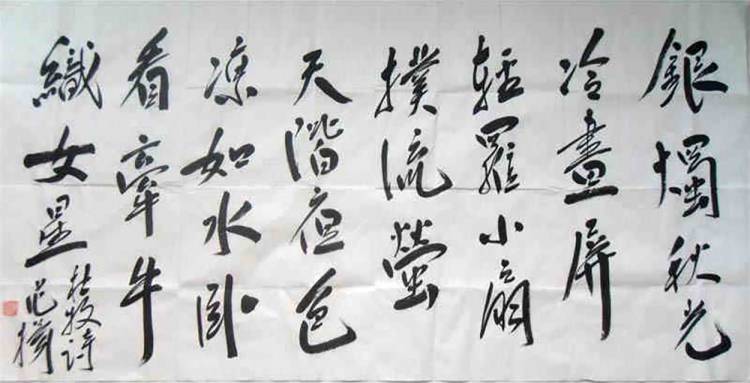 銀燭秋光
冷畫屏
輕羅小扇
撲流螢
天階夜色
涼如水卧
看牽牛
織女星
杜牧詩